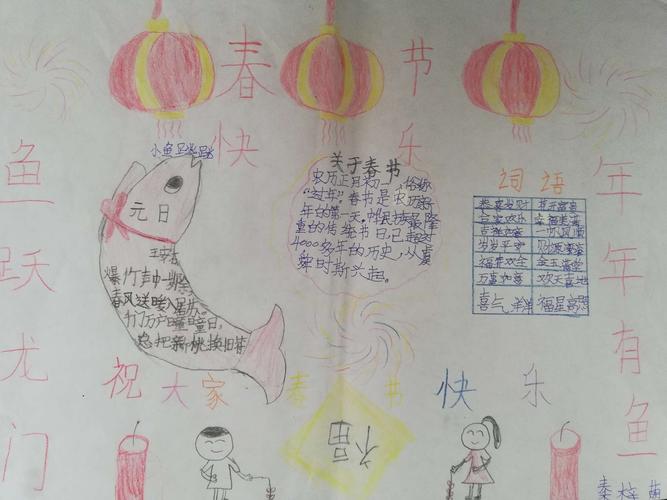 春节
快乐
鱼跃龙门
年年有鱼
小鱼跳跳
元日
爆竹声中一岁
春风送暖入屠苏
千门万户曈曈日
总把新桃换旧符
关于春节
农历正月初一,俗称
"过年"。春节是农历新
年的第一天,也是
重的传统节日,已超过
4000多年的历史,从夏
舜时斯兴起。
词语
恭喜发财
合家欢乐 幸福美满
吉祥如意 一帆风顺
岁岁平安 财源滚滚
福寿双全 金玉满堂
万事如意 欢天喜地
喜气洋洋 福星高照
祝大家春节快乐
福